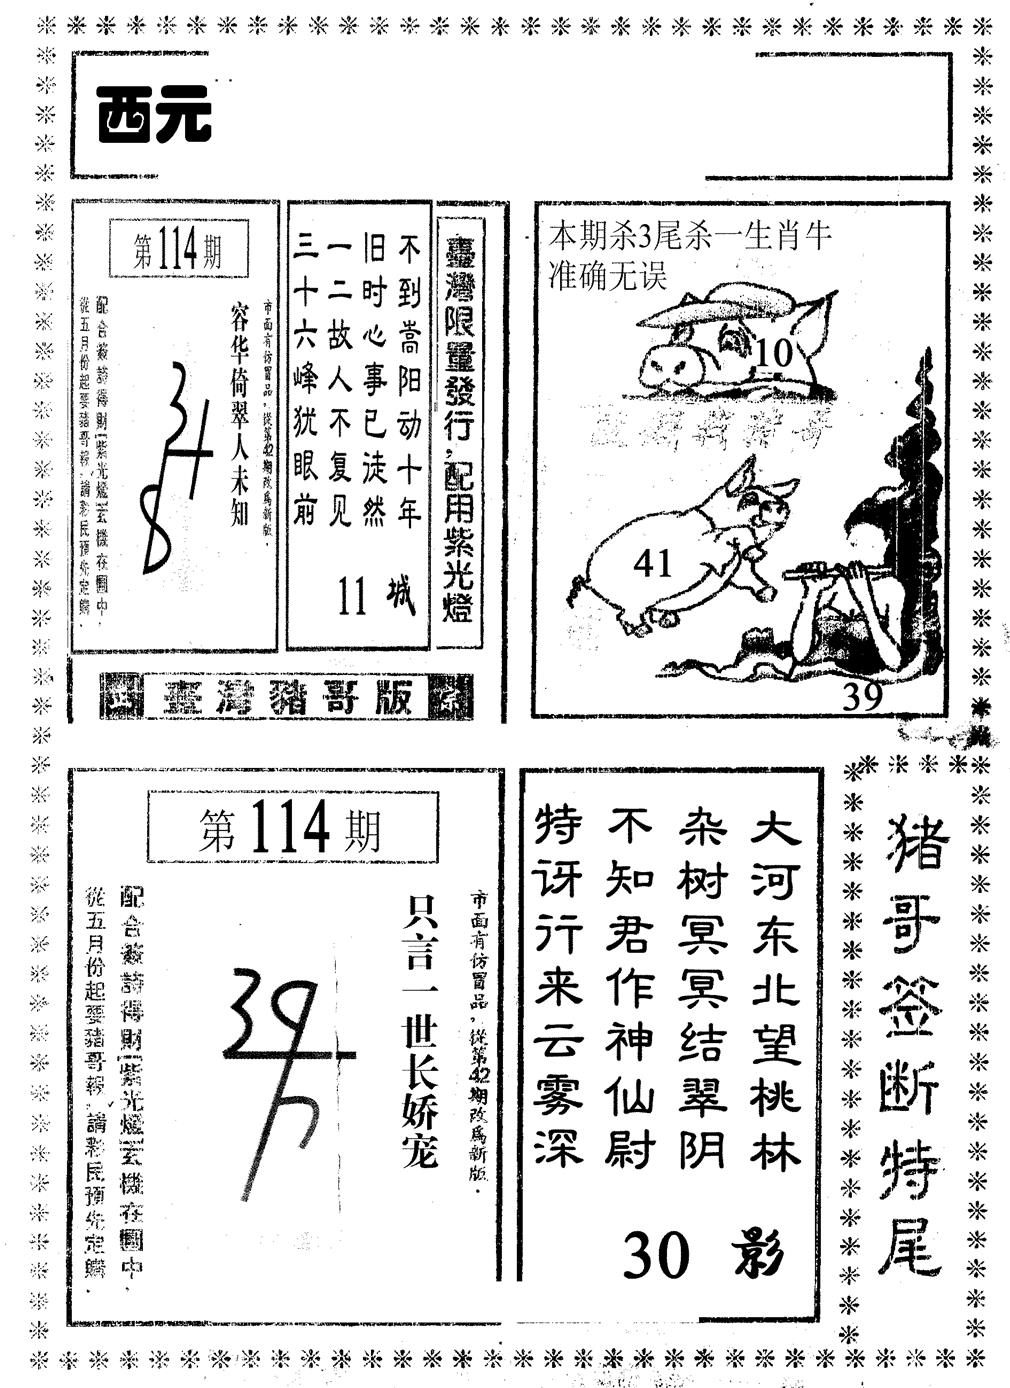 西元
第114期
市面有仿冒品，從第42期改爲新版．
容华倚翠人未知
配合簽詩得財【紫光燈】玄機在圖中．
從五月份起要豬哥報，請彩民預先定購．
臺灣限量發行，配用紫光燈
不到嵩阳动十年
旧时心事已徒然
一二故人不复见
三十六峰犹眼前
11 城
臺灣豬哥版
本期杀3尾杀一生肖牛
准确无误
10
41
39
第114期
市面有仿冒品，從第42期改爲新版．
只言一世长娇宠
39
配合簽詩得財【紫光燈】玄機在圖中．
從五月份起要豬哥報，請彩民預先定購．
大河东北望桃林
杂树冥冥结翠阴
不知君作神仙尉
特讶行来云雾深
30 影
猪哥签断特尾